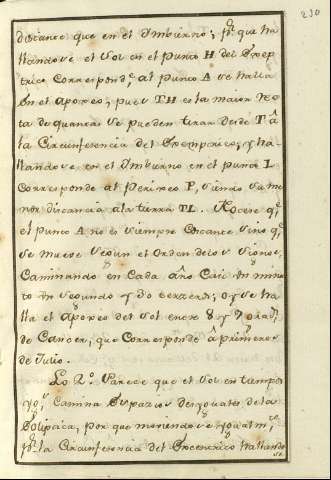 230
distance que en el Imbierno; pr. que ha
llandose el Sol en el punto H del Excep
trico correspondte. al punto A se halla
en el Apogeo; pues TH es la maior No
ta de quantas se pueden tirar desde T â
la Circunferencia del Excemptrico, y ha
llandose en el Imbierno en el punto L
corresponde al Perigeo P, siendo su me
nor distancia a la tierra TL. Notese qe.
el punto A no es siempre constante sino qe.
se mueve segun el Orden de los Signos,
Caminando en Cada año Casi un minu
to un segundo y 30 terceros; oy se ha
lla el Apogeo del Sol entre 8 y 9 grads.
de Cancer, que corresponde â primeros
de Julio.
Lo 2º. Parece que el Sol en tiempos
ygs. camina Espacios desyguales de la
Ecliptica, por que moviendose ygualmte.
pr. la Circunferencia del Excentrico hallando
se